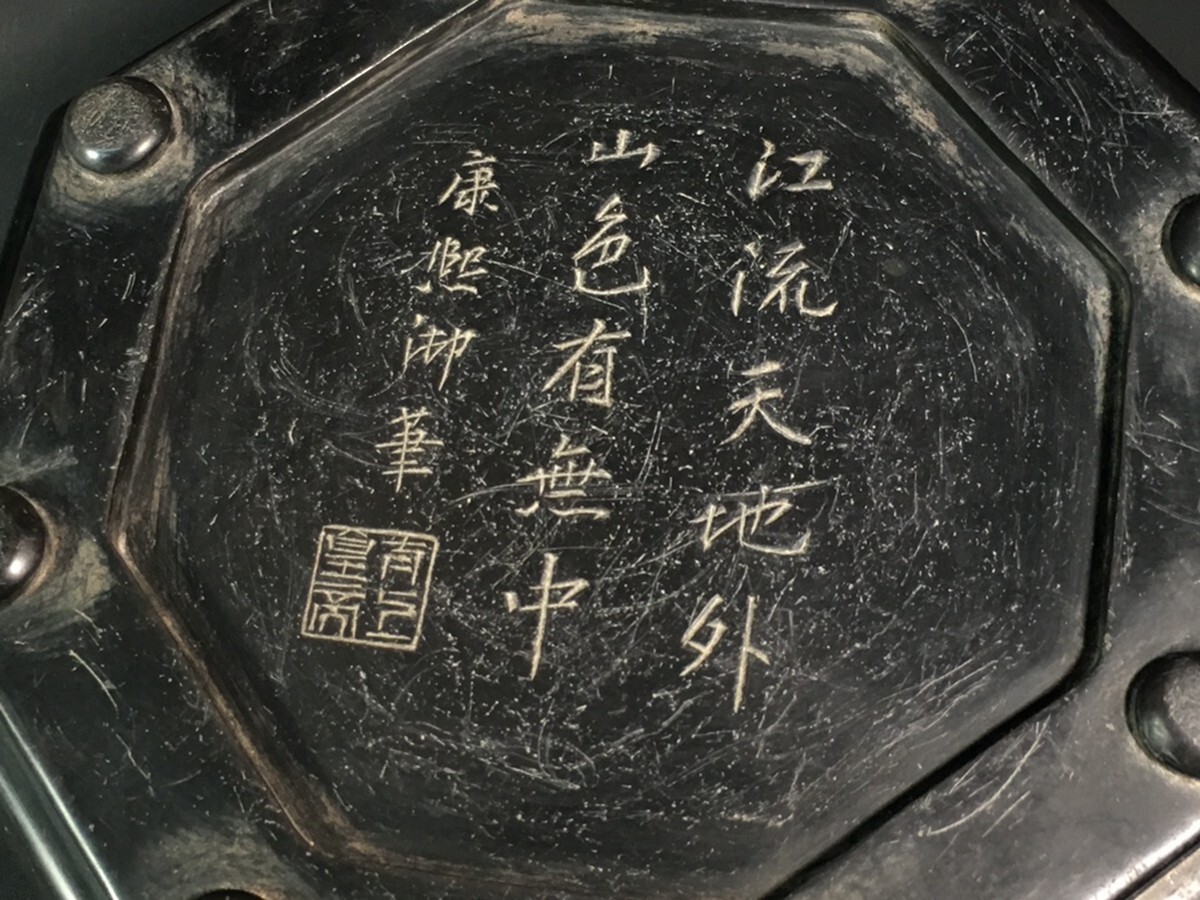 江流天地外
山色有無中
康熙御筆